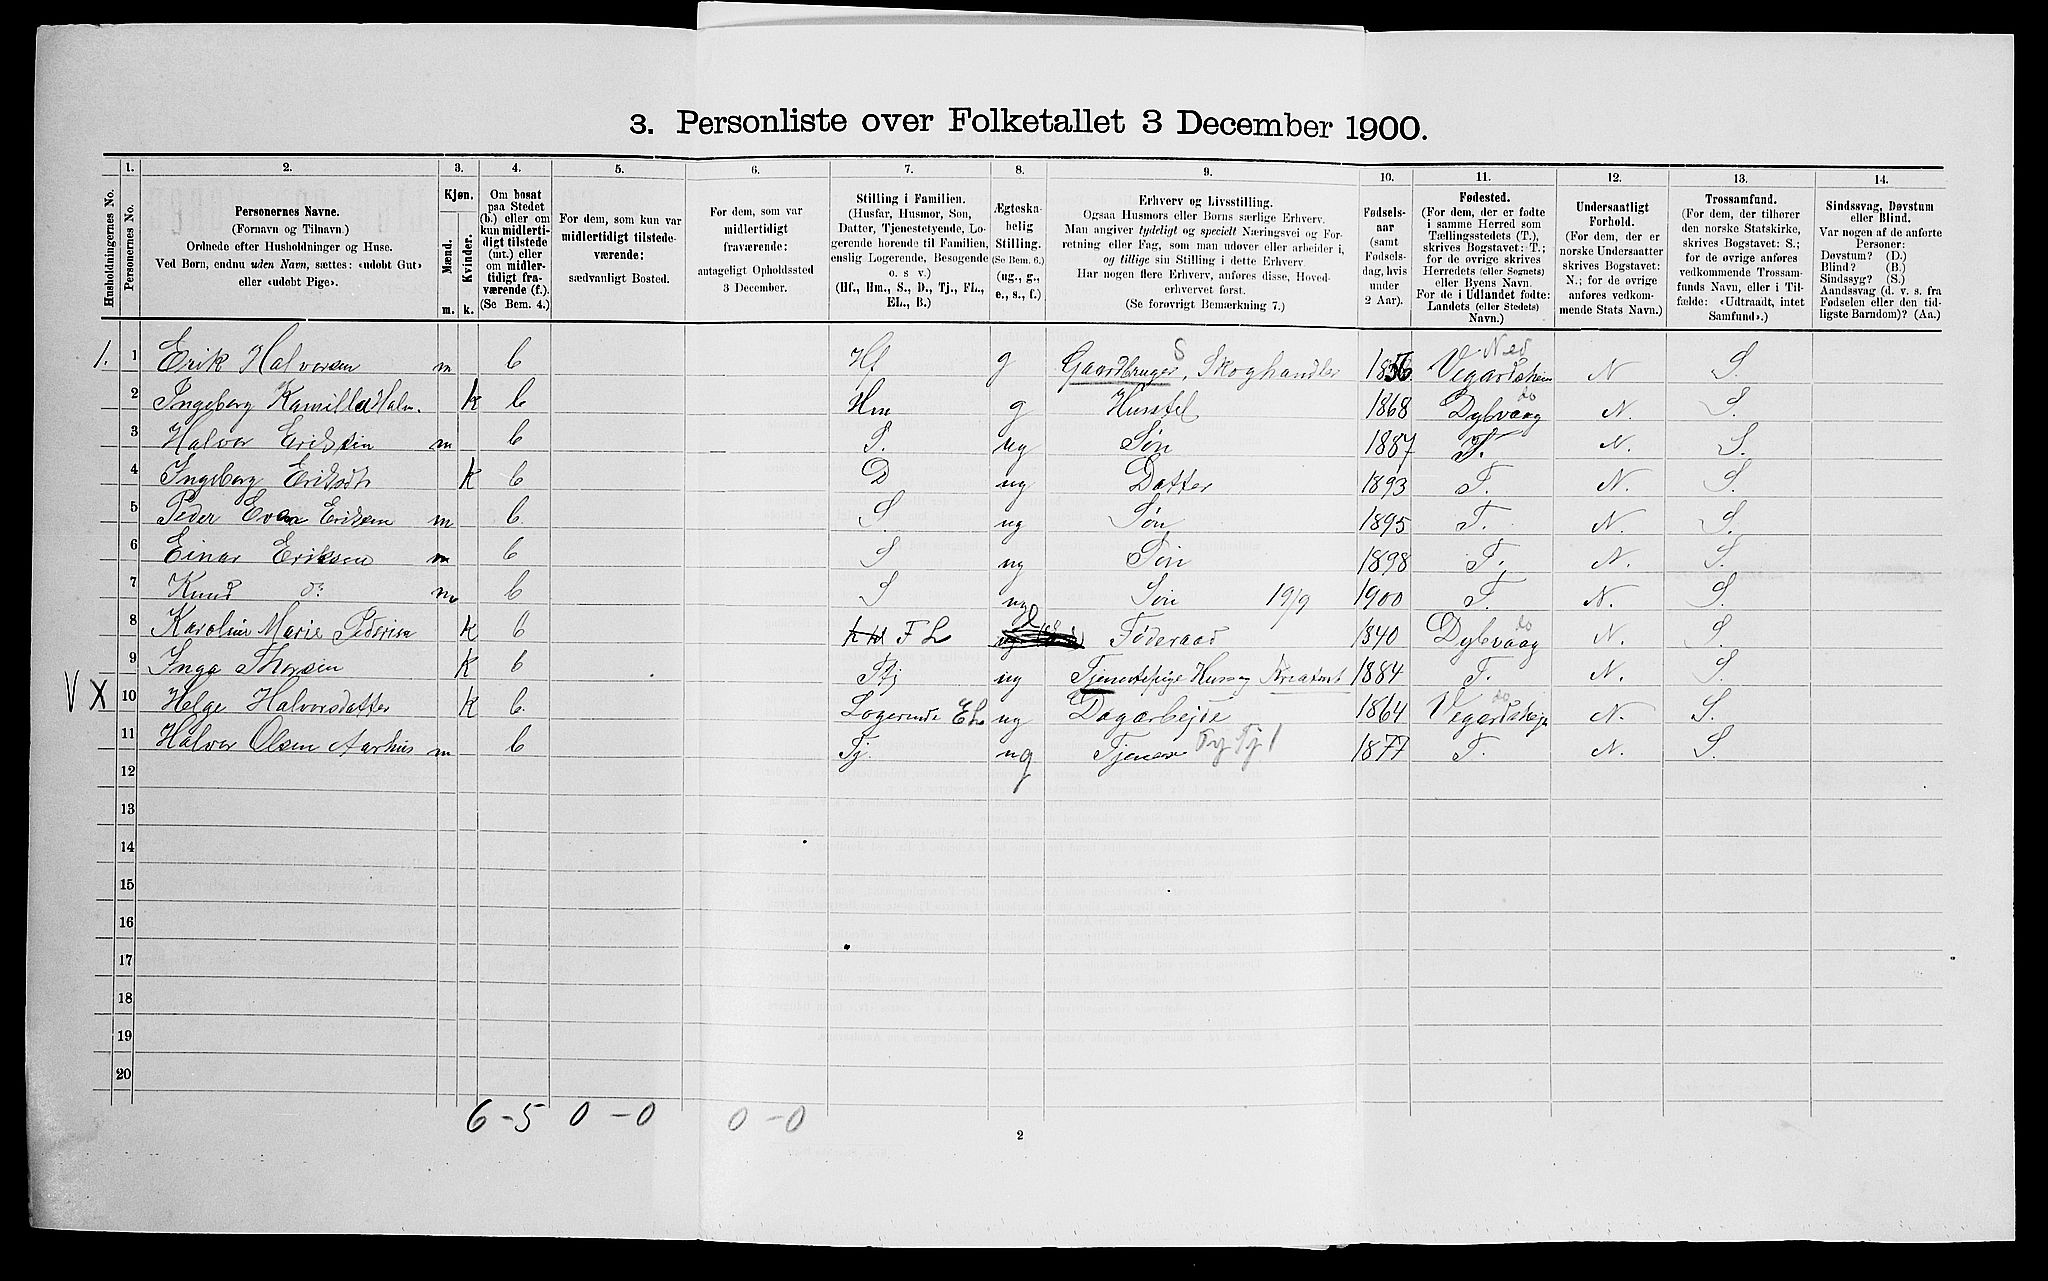 3. Personliste over Folketallet 3 December 1900.
1. 2. 3. 4. 5. 6. 7. 8. 9. 10. 11. 12. 13. 14.
Husholdningernes No.
Personernes No.
Personernes Navne.
(Fornavn og Tilnavn.)
Ordnede efter Husholdninger og Huse.
Ved Børn, endnu uden Navn, sættes: «udøbt Gut»
eller «udøbt Pige».
Kjøn.
Mænd.
Kvinder.
m. k.
Om bosat
paa Stedet
(b.) eller om
kun midlerti-
digt tilstede
(mt.) eller
om midler-
tidigt fra-
værende (f.).
(Se Bem. 4.)
For dem, som kun var
midlertidigt tilstede-
værende:
sædvanligt Bosted.
For dem, som var
midlertidigt
fraværende:
antageligt Opholdssted
3 December.
Stilling i Familien.
(Husfar, Husmor, Søn,
Datter, Tjenestetyende, Lo-
gerende hørende til Familien,
enslig Logerende, Besøgende
o. s v.)
(Hf., Hm., S., D., Tj., FL.,
EL., B.)
Ægteska-
belig
Stilling.
(Se Bem. 6.)
(ug., g.,
e., s., f.)
Erhverv og Livsstilling.
Ogsaa Husmors eller Børns særlige Erhverv.
Man angiver tydeligt og specielt Næringsvei og For-
retning eller Fag, som man udøver eller arbeider i,
og tillige sin Stilling i dette Erhverv.
Har nogen flere Erhverv, anføres disse, Hoved-
erhvervet først.
(Se forøvrigt Bemærkning 7.)
Fødsels-
aar
(samt
Fødsels-
dag, hvis
under
2 Aar).
Fødested.
(For dem, der er fødte
i samme Herred som
Tællingsstedets (T.),
skrives Bogstavet: T.;
for de øvrige skrives
Herredets (eller Sognets)
eller Byens Navn.
For de i Udlandet fødte:
Landets (eller Stedets)
Navn.)
Undersaatligt
Forhold.
(For dem, der er
norske Undersaatter
skrives Bogstavet:
N.; for de øvrige
anføres vedkom-
mende Stats Navn.)
Trossamfund.
(For dem, der tilhører
den norske Statskirke,
skrives Bogstavet: S.;
for de øvrige anføres
vedkommende Trossam-
funds Navn, eller i Til-
fælde: «Udtraadt, intet
Samfund».)
Sindssvag, Døvstum
eller Blind.
Var nogen af de anførte
Personer:
Døvstum? (D.)
Blind? (B.)
Sindssyg? (S.)
Aandssvag (d. v. s. fra
Fødselen eller den tid-
ligste Barndom)? (Aa.)
S Ned
1. 1 Erik Halvorsen m b Hf g Gaardbruger, Skoghandler 1856 Vegardsheien N S.
do
2 Ingeborg Kamilla Halv. k b Hm g Husstel 1868 Dybvaag N. S.
3 Halvor Eriksen m b S. ug Søn 1887 T. N. S.
4 Ingeborg Eriksdtr k b D ug Datter 1893 T. N. S.
5 Peder Even Eriksen m b S. ug Søn 1895 T. N. S.
6 Einar Eriksen m b S ug Søn 1898 T. N. S.
7 Knud do m b S ug Søn 19/9 1900 T. N. S
do
8 Karoline Marie Pedersen k b FL Føderaad 1840 Dybvaag N. S.
9 Inga Thorsen k b Tj ug Tjenestepige Husog Kreatust 1884 T. N. S
do
V X 10 Helge Halvorsdatter k b Logerende EL ug Dagarbejde 1864 Vegardsheje N. S.
11 Halvor Olsen Aarhus m b Tj. ug Tjener Ty Tj 1 1877 T. N. S.
12
13
14
15
16
17
18
19
20
6 - 5 0 - 0 0 - 0
2